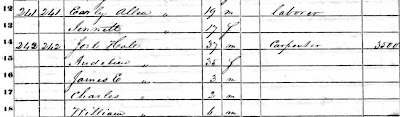 12 241 241 Early Allen " 19 m laborer
13 Jennett " 17 f
14 242 242 Joel Hale " 37 m Carpenter 3500
15 Andeline " 35 f
16 James E " 3 m
17 Charles " 2 m
18 William " 6 m